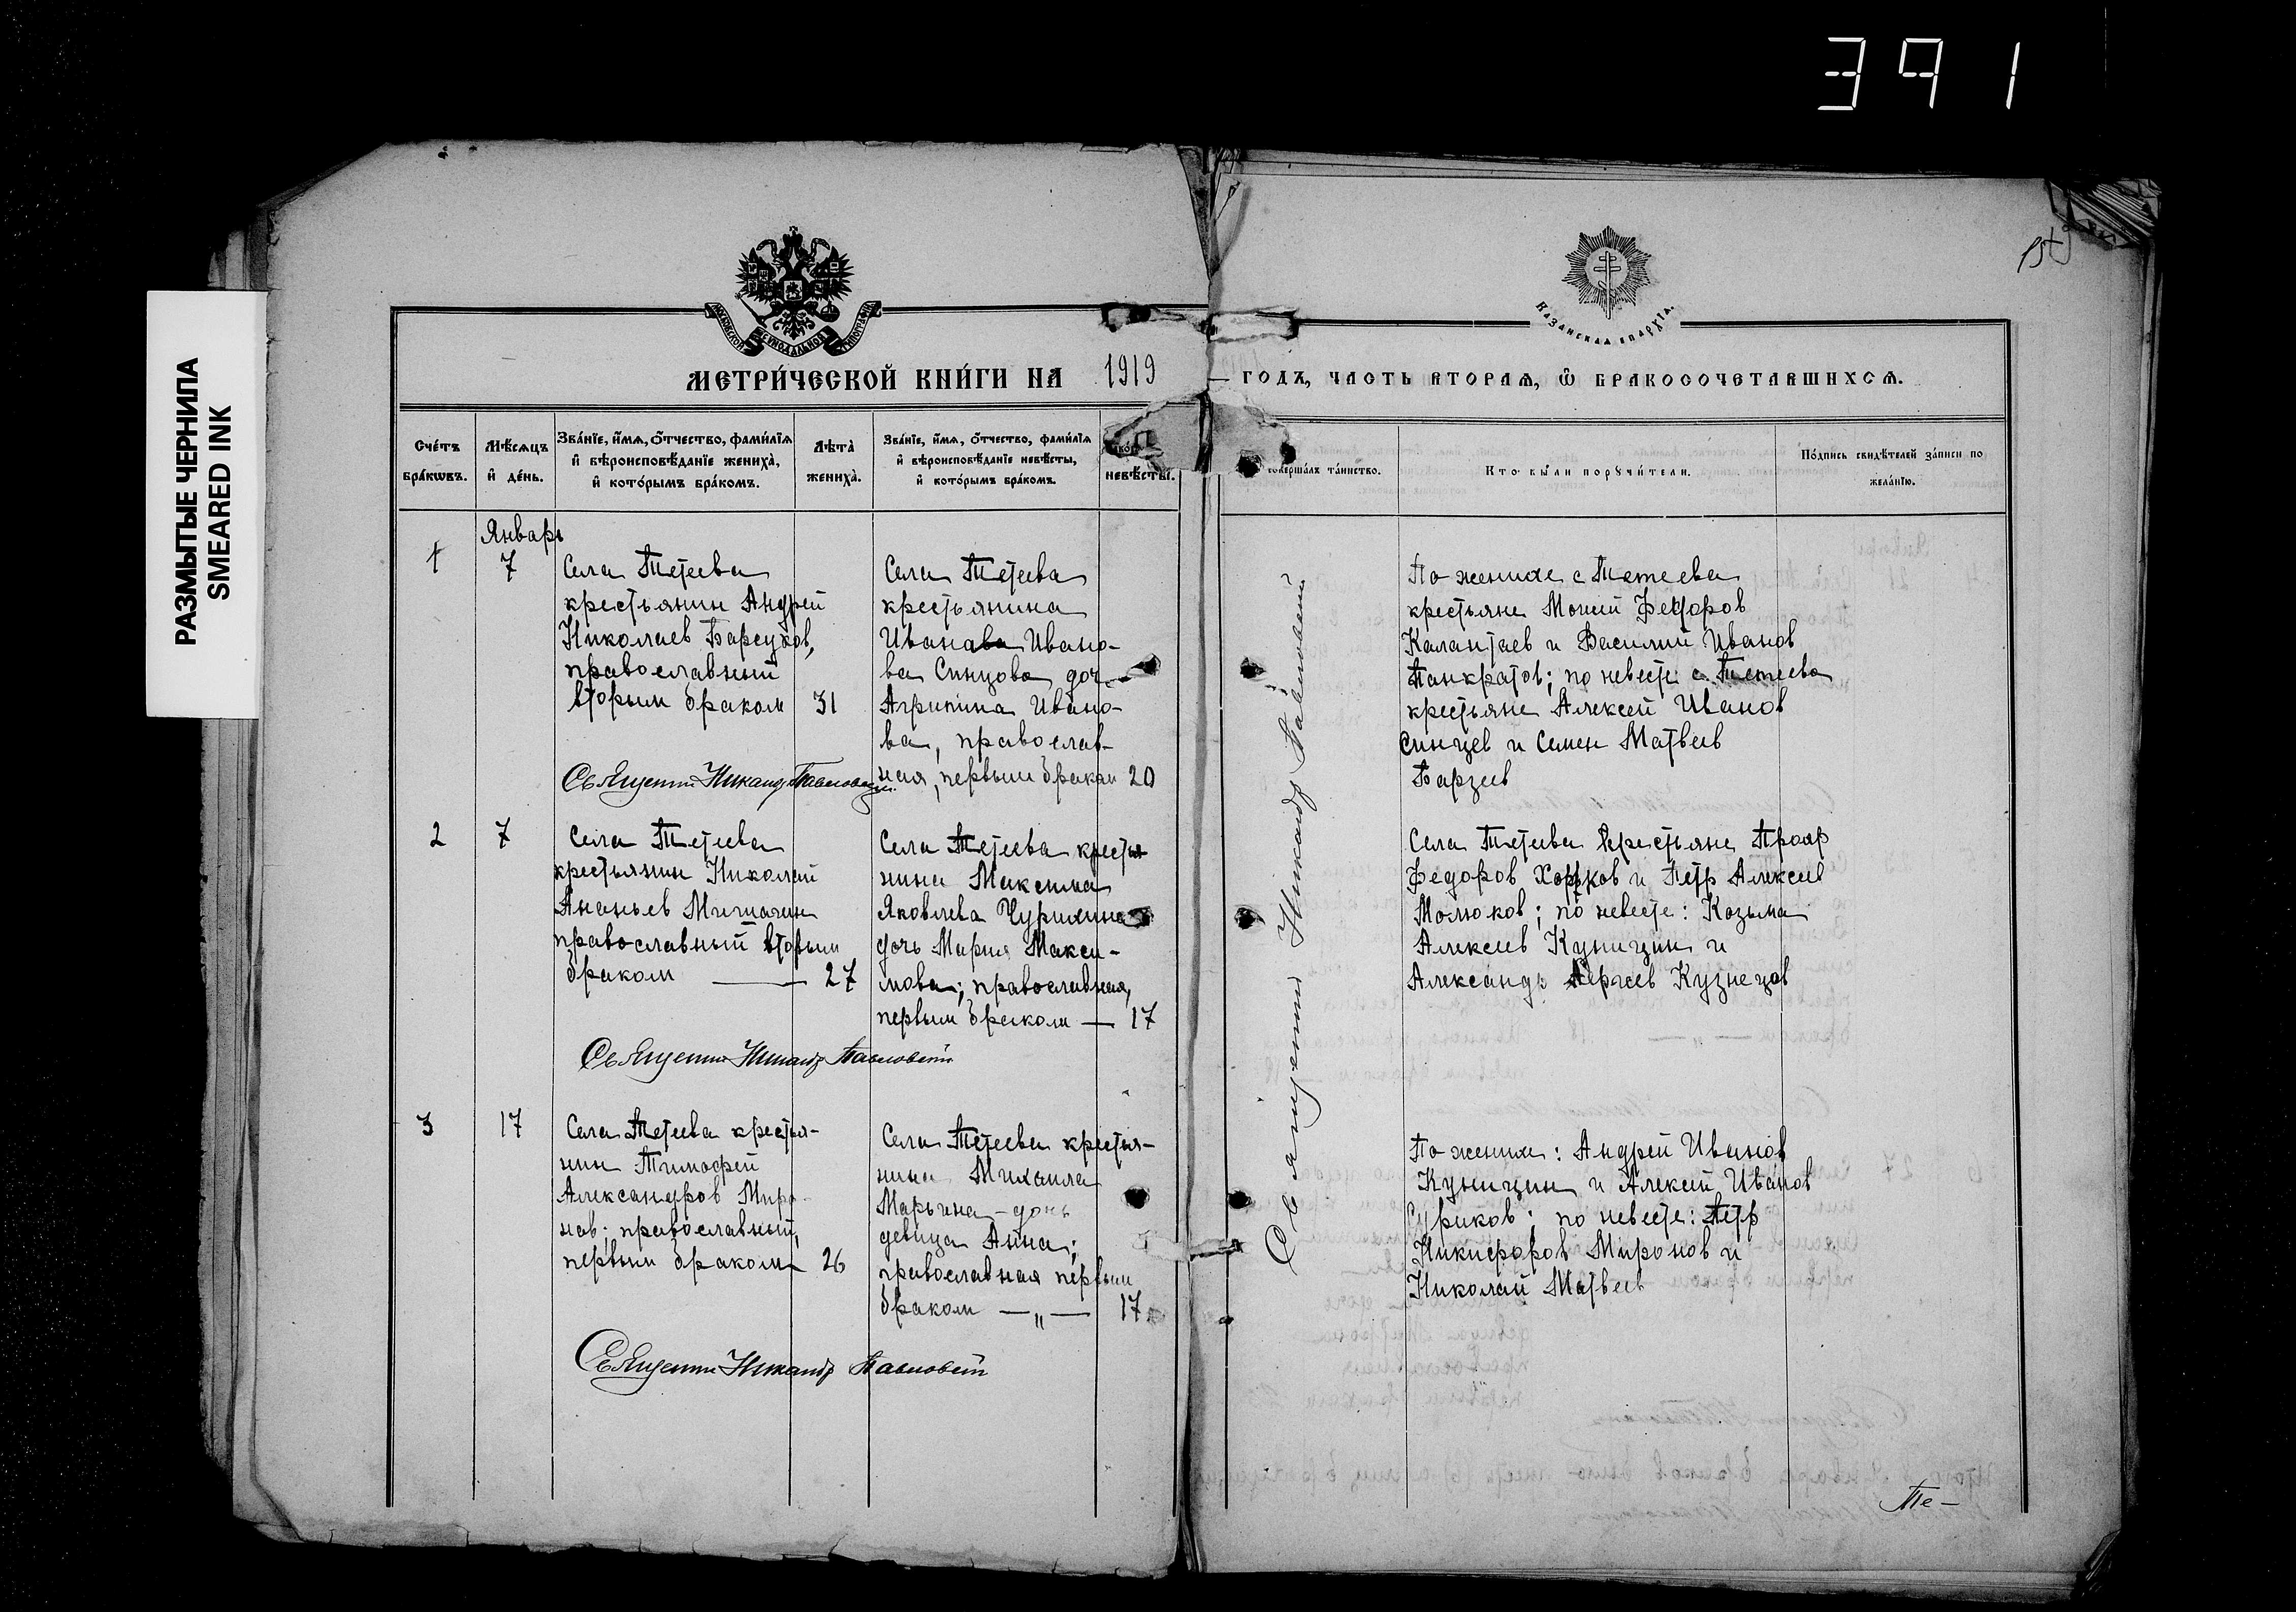 391
РАЗМЫТЫЕ ЧЕРНИЛА
SMEARED INK
МОСКОВСКОЙ СѴНОДАЛЬНОЙ ТИПОГРАФІИ
КАЗАНСКАЯ ЕПАРХІЯ.
МЕТРИ́ЧЕСКОЙ КНИ́ГИ НА 1919
ГОДЪ, ЧАСТЬ ВТОРАЯ, Ѽ БРАКОСОЧЕТАВШИХСЯ.
Сче́тъ
бра́кѡвъ.
Мѣ́сяцъ
и҆ де́нь.
Зва́нїе, и҆́мѧ, ѻ҆́тчество, фами́лїѧ
и҆ вѣроисповѣ́данїе жениха̀,
и҆ кото́рымъ бра́комъ.
Лѣ́та
жениха̀.
Зва́нїе, и҆́мѧ, ѻ҆́тчество, фами́лїѧ
и҆ вѣроисповѣ́данїе невѣ́сты,
и҆ кото́рымъ бра́комъ.
невѣ́сты.
соверша́лъ та́инство.
Кто были порꙋчи́тели.
По́дпись свидѣ́телей за́писи по
жела́нїю.
Январь
1
7
Села Тетеева
крестьянин Андрей
Николаев Барсуков,
православный
вторым браком 31
Села Тетеева
крестьянина
Ивана Ивано-
ва Синцова доч
Агрипина Ивано-
ва, православ-
ная, первым браком 20
Священник Никандр Павловский
По женихе с Тетеева
крестьяне Моисей Федоров
Калантаев и Василий Иванов
Панкратов; по невесте с. Тетеева
крестьяне Алексей Иванов
Синцев и Семен Матвеев
Барзеев
2
7
Села Тетеева
крестьянин Николай
Ананьев Мишагин
православный вторым
браком — 27
Села Тетеева крестья
нина Максима
Яковлева Чурилина
дочь Мария Макси-
мова; православная,
первым браком — 17
Священник Никандр Павловский
Села Тетеева крестьяне
Федоров и Петр Алексеев
Молюков; по невесте: Козьма
Алексеев Куницын и
Александр Сергеев Кузнецов
3
17
Села Тетеева крестья-
нин Тимофей
Александров Миро-
нов; православный,
первым браком 26
Села Тетеева крестья-
нина Михаила
Марьина - дочь
девица Анна;
православная первым
браком — „ — 17
Священник Никандр Павловский
По женихе: Андрей Иванов
Куницын и Алексей Иванов
Суриков; по невесте: Петр
Никифоров Миронов и
Николай Матвеев
Священник Никандр Павловский
Те-